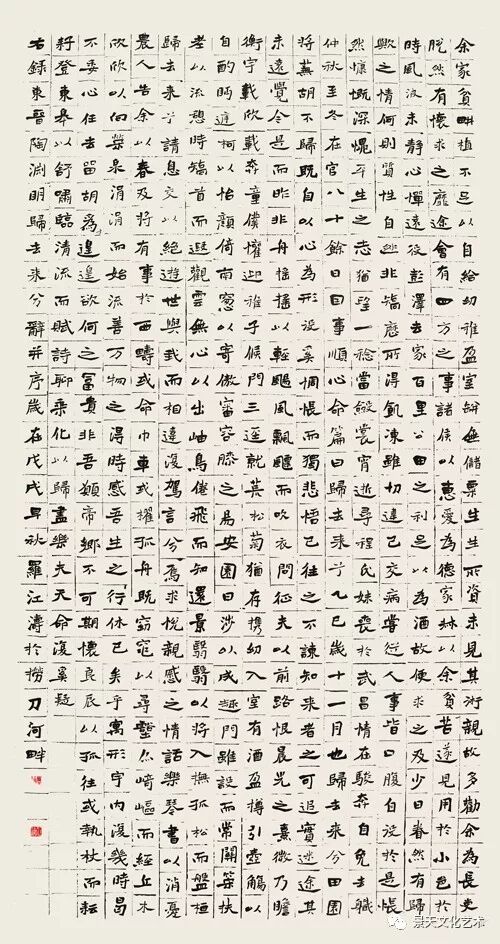 余家貧耕植不足以自給幼稚盈室缾無儲粟生生所資未見其術親故多勸余為長吏
脱然有懷求之靡途會有四方之事諸侯以惠愛為德家叔以余貧苦遂見用於小邑於
時風波未靜心憚遠役彭澤去家百里公田之利足以為酒故便求之及少日眷然有歸
歟之情何則質性自然非矯厲所得飢凍雖切違己交病嘗從人事皆口腹自役於是悵
然慷慨深愧平生之志猶望一稔當斂裳宵逝尋程氏妹喪於武昌情在駿奔自免去職
仲秋至冬在官八十餘日因事順心命篇曰歸去來兮乙巳歲十一月也歸去來兮田園
將蕪胡不歸既自以心為形役奚惆悵而獨悲悟已往之不諫知來者之可追實迷途其
未遠覺今是而昨非舟搖搖以輕颺風飄飄而吹衣問征夫以前路恨晨光之熹微乃瞻
衡宇載欣載奔童僕懽迎稚子候門三逕就荒松菊猶存携幼入室有酒盈樽引壺觴以
自酌眄庭柯以怡顏倚南窓以寄傲審容膝之易安園日涉以成趣門雖設而常關策扶
老以流憩時矯首而遐觀雲無心以出岫鳥倦飛而知還景翳翳以將入撫孤松而盤桓
歸去來兮請息交以絕遊世與我而相違復駕言兮焉求悅親戚之情話樂琴書以消憂
農人告余以春及將有事於西疇或命巾車或櫂孤舟既窈窕以尋壑亦崎嶇而經丘木
欣欣以向榮泉涓涓而始流善万物之得時感吾生之行休已矣乎寓形宇內復幾時曷
不委心任去留胡為遑遑欲何之富貴非吾願帝鄉不可期懷良辰以孤往或執杖而耘
耔登東皋以舒嘯臨清流而賦詩聊乘化以歸盡樂夫天命復奚疑
右錄東晉陶淵明歸去來兮辭并序歲在戊戌早秋羅江濤於撈刀河畔
景天文化艺术